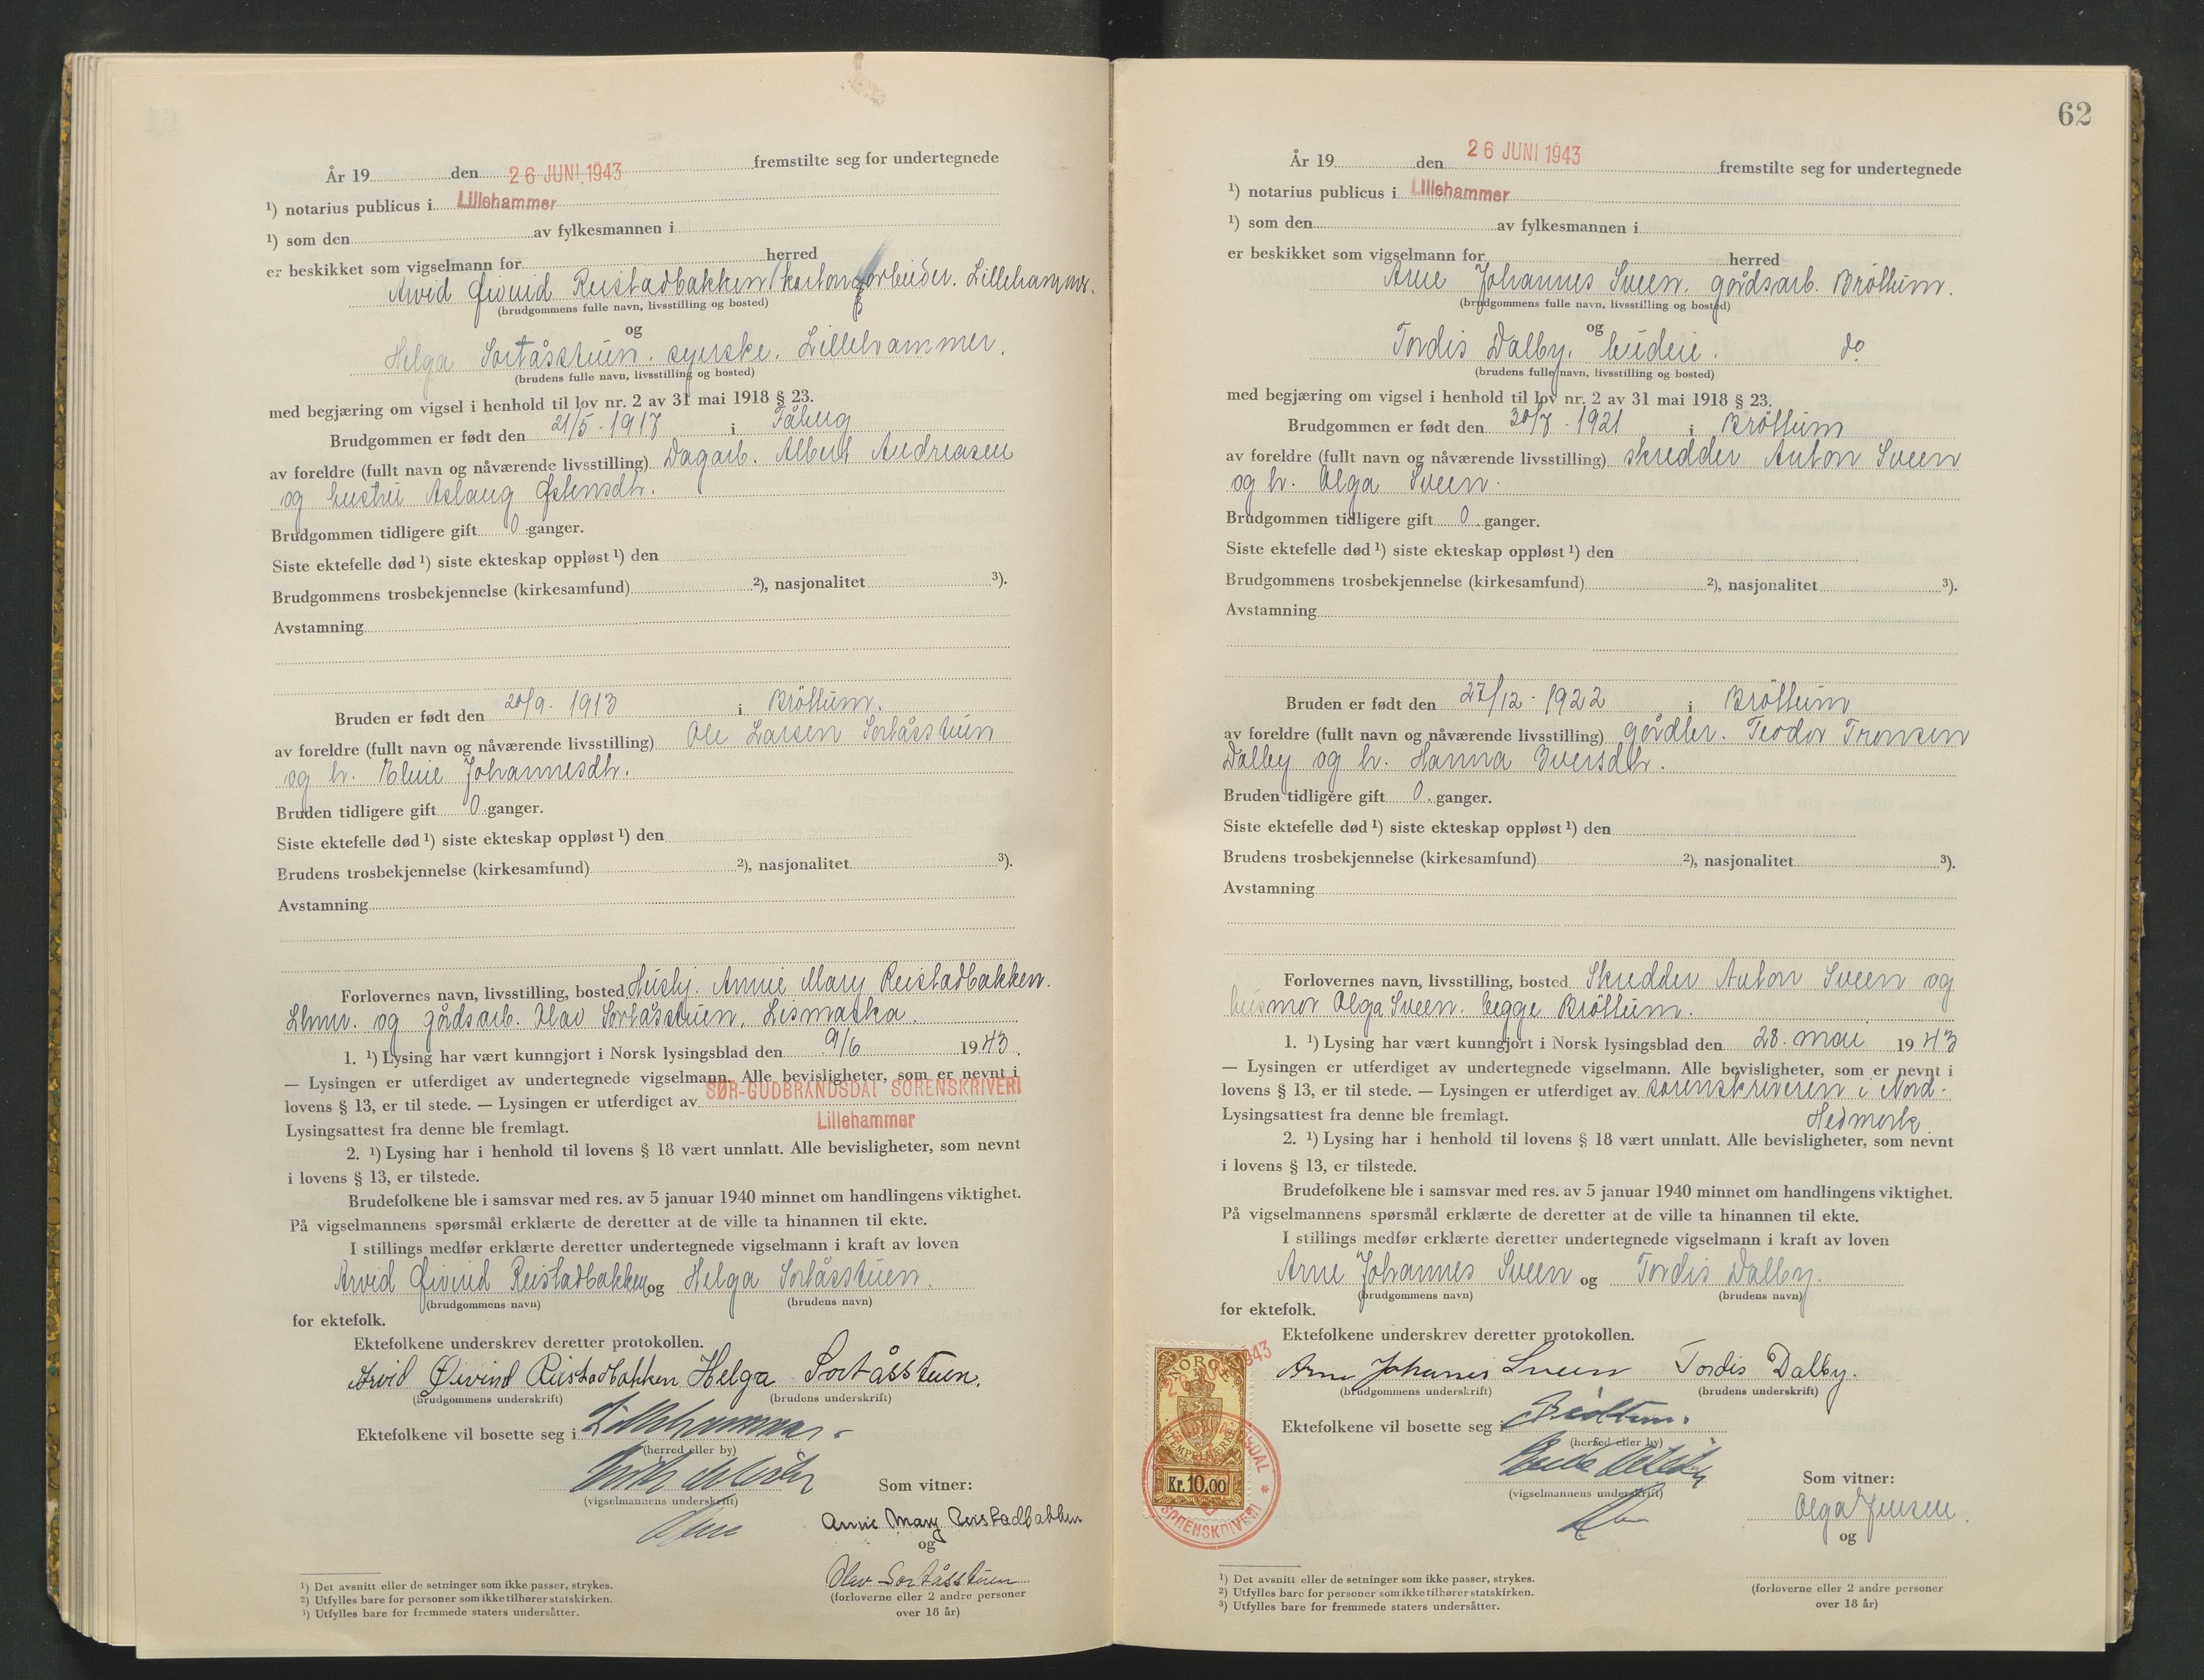 År 19 den 26 JUNI 1943 fremstilte seg for undertegnede
¹) notarius publicus i Lillehammer
¹) som den av fylkesmannen i
er beskikket som vigselmann for herred
Arvid Øivind Reistadbakken kartongarbeider. Lillehammer.
(brudgommens fulle navn, livsstilling og bosted)
og
Helga Sortåsstuen. syerske. Lillehammer.
(brudens fulle navn, livsstilling og bosted)
med begjæring om vigsel i henhold til lov nr. 2 av 31 mai 1918 § 23.
Brudgommen er født den 21/5 - 1917 i Fåberg
av foreldre (fullt navn og nåværende livsstilling) Dagarb. Albert Andreasen
og hustru Aslaug
Brudgommen tidligere gift 0 ganger.
Siste ektefelle død ¹) siste ekteskap oppløst ¹) den
Brudgommens trosbekjennelse (kirkesamfund) ²), nasjonalitet ³).
Avstamning
Bruden er født den 20/9 - 1913 i Brøttum.
av foreldre (fullt navn og nåværende livsstilling) Ole Larsen Sortåsstuen
og h. Johannesdtr.
Bruden tidligere gift 0 ganger.
Siste ektefelle død ¹) siste ekteskap oppløst ¹) den
Brudens trosbekjennelse (kirkesamfund) ²), nasjonalitet ³).
Avstamning
Forlovernes navn, livsstilling, bosted Hushj. Annie Mary Reistadbakken.
Lhmr. og gårdsarb. Olav Sortåsstuen, Lismarka.
1. ¹) Lysing har vært kunngjort i Norsk lysingsblad den 9/6 1943.
— Lysingen er utferdiget av undertegnede vigselmann. Alle bevisligheter, som er nevnt i
lovens § 13, er til stede. — Lysingen er utferdiget av SØR-GUDBRANDSDAL SORENSKRIVERI
Lysingsattest fra denne ble fremlagt. Lillehammer
2. ¹) Lysing har i henhold til lovens § 18 vært unnlatt. Alle bevisligheter, som nevnt
i lovens § 13, er tilstede.
Brudefolkene ble i samsvar med res. av 5 januar 1940 minnet om handlingens viktighet.
På vigselmannens spørsmål erklærte de deretter at de ville ta hinannen til ekte.
I stillings medfør erklærte deretter undertegnede vigselmann i kraft av loven
Arvid Øivind Reistadbakken og Helga Sortåsstuen.
(brudgommens navn) (brudens navn)
for ektefolk.
Ektefolkene underskrev deretter protokollen.
Arvid Øivind Reistadbakken Helga Sortåsstuen.
(brudgommens underskrift) (brudens underskrift)
Ektefolkene vil bosette seg i Lillehammer.
(herred eller by)
(vigselmannens underskrift)
Som vitner:
Annie Mary Reistadbakken
og
Olav Sortåsstuen
(forloverne eller 2 andre personer
over 18 år)
¹) Det avsnitt eller de setninger som ikke passer, strykes.
²) Utfylles bare for personer som ikke tilhører statskirken.
³) Utfylles bare for fremmede staters undersåtter.
62
År 19 den 26 JUNI 1943 fremstilte seg for undertegnede
¹) notarius publicus i Lillehammer
¹) som den av fylkesmannen i
er beskikket som vigselmann for herred
Arne Johannes Sveen. gårdsarb. Brøttum.
(brudgommens fulle navn, livsstilling og bosted)
og
Tordis Dalby. budeie. do
(brudens fulle navn, livsstilling og bosted)
med begjæring om vigsel i henhold til lov nr. 2 av 31 mai 1918 § 23.
Brudgommen er født den 30/7 - 1921 i Brøttum
av foreldre (fullt navn og nåværende livsstilling) skredder Anton Sveen
og h. Olga Sveen.
Brudgommen tidligere gift 0 ganger.
Siste ektefelle død ¹) siste ekteskap oppløst ¹) den
Brudgommens trosbekjennelse (kirkesamfund) ²), nasjonalitet ³).
Avstamning
Bruden er født den 27/12 - 1922 i Brøttum
av foreldre (fullt navn og nåværende livsstilling) gårdbr. Teodor Tronsen
Dalby og h. Hanna Iversdtr.
Bruden tidligere gift 0 ganger.
Siste ektefelle død ¹) siste ekteskap oppløst ¹) den
Brudens trosbekjennelse (kirkesamfund) ²), nasjonalitet ³).
Avstamning
Forlovernes navn, livsstilling, bosted Skredder Anton Sveen og
husmor Olga Sveen. begge Brøttum.
1. ¹) Lysing har vært kunngjort i Norsk lysingsblad den 28. mai 1943
— Lysingen er utferdiget av undertegnede vigselmann. Alle bevisligheter, som er nevnt i
lovens § 13, er til stede. — Lysingen er utferdiget av sorenskriveren i Nord-
Lysingsattest fra denne ble fremlagt. Hedmark.
2. ¹) Lysing har i henhold til lovens § 18 vært unnlatt. Alle bevisligheter, som nevnt
i lovens § 13, er tilstede.
Brudefolkene ble i samsvar med res. av 5 januar 1940 minnet om handlingens viktighet.
På vigselmannens spørsmål erklærte de deretter at de ville ta hinannen til ekte.
I stillings medfør erklærte deretter undertegnede vigselmann i kraft av loven
Arne Johannes Sveen og Tordis Dalby.
(brudgommens navn) (brudens navn)
for ektefolk.
Ektefolkene underskrev deretter protokollen.
Arne Johanes Sveen Tordis Dalby.
(brudgommens underskrift) (brudens underskrift)
Ektefolkene vil bosette seg i Brøttum.
(herred eller by)
(vigselmannens underskrift)
Som vitner:
Olga Jensen
og
(forloverne eller 2 andre personer
over 18 år)
NORGE
STEMPELMERKE
Kr. 10.00
SORENSKRIVERI
¹) Det avsnitt eller de setninger som ikke passer, strykes.
²) Utfylles bare for personer som ikke tilhører statskirken.
³) Utfylles bare for fremmede staters undersåtter.